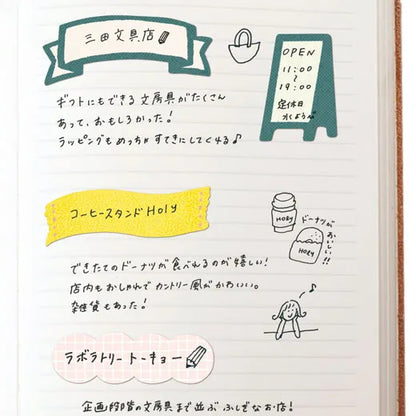 三田文具店
OPEN
11:00
~
19:00
定休日
水ようび
ギフトにもできる文房具がたくさん
あって、おもしろかった!
ラッピングもめっちゃすてきにしてくる♪
コーヒースタンドHoly
HOLY
ドーナツが
おいしい!!
HOLY
できたてのドーナツが食べれるのが嬉しい!
店内もおしゃれでカントリー風がかわいい。
雑貨もあった!
ラボラトリートーキョー
企画段階の文房具まで並ぶふしぎなお店!